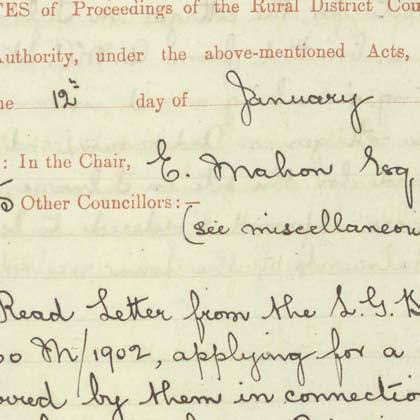 TES of Proceedings of the Rural District Cou
Authority, under the above-mentioned Acts,
he 12th day of January
: In the Chair, E. Mahon Esq
5 Other Councillors:—
(see miscellaneou
Read Letter from the L.G.B
00 M/1902, applying for a
oved by them in connectio